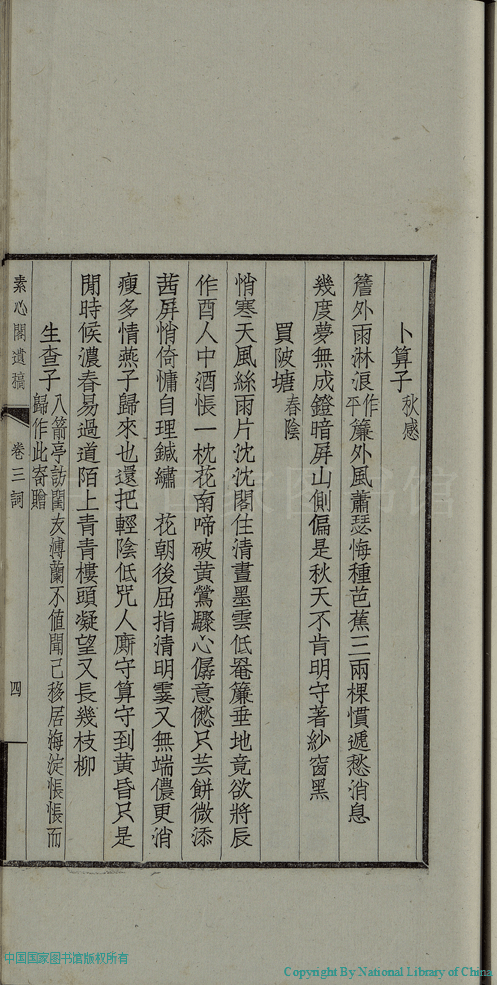 卜算子秋感
簷外雨淋浪作平簾外風蕭瑟悔種芭蕉三兩棵慣遞愁消息
幾度夢無成鐙暗屏山側偏是秋天不肯明守著紗窗黑
買陂塘春陰
悄寒天風絲雨片沈沈閣住清晝墨雲低罨簾垂地竟欲將辰
作酉人中酒悵一枕花南啼破黃鶯驟心孱意僽只芸餅微添
茜屏悄倚慵自理鍼繡 花朝後屈指清明霎又無端儂更消
瘦多情燕子歸來也還把輕陰低咒人廝守算守到黃昏只是
閒時候濃春易過道陌上青青樓頭凝望又長幾枝柳
生查子八箭亭訪閨友溥蘭不值聞已移居海淀悵悵而歸作此寄贈
素心閣遺稿 卷三詞 四
中国国家图书馆版权所有
Copyright By National Library of China